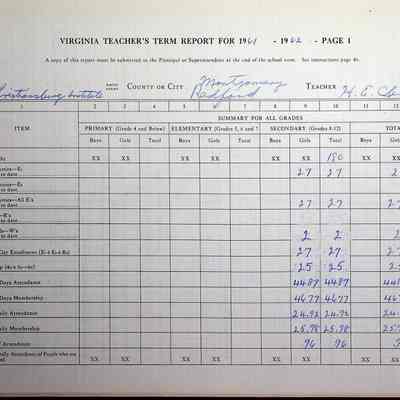 VIRGINIA TEACHER'S TERM REPORT FOR 1961 - 1962 - PAGE 1
A copy of this report must be submitted to the Principal or Superintendent at the end of the school term. See instructions page 4b.
ristiansburg Institute COUNTY OR CITY Montgomery Radford TEACHER H. E.
1 2 3 4 5 6 7 8 9 10 11
SUMMARY FOR ALL GRADES
ITEM PRIMARY (Grade 4 and Below) ELEMENTARY (Grades 5, 6 and 7 SECONDARY (Grades 8-12) TOTA
Boys Girls Total Boys Girls Total Boys Girls Total Boys
XX XX XX XX XX XX 180 XX XX
to date 27 27 2
to date
—All E's
to date 27 27 27
—R's
—W's
to date 2 2 2
City Enrollment 27 27 27
25 25 25
Days Attendance 4487 4487 448
Days Membership 4677 4677 467
Daily Attendance 24.92 24.92 24.
Daily Membership 25.98 25.98 25.
f Attendance 96 96 9
XX XX XX XX XX XX XX XX